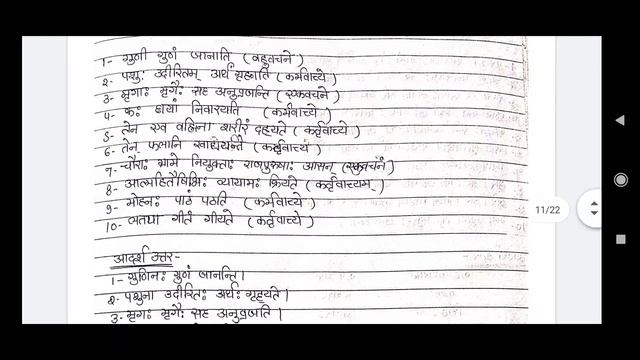 1- गुणी गुणं जानाति (बहुवचने)
2- पशुः उदीरितम् अर्थं गृह्णाति (कर्मवाच्ये)
3- मृगाः मृगैः सह अनुव्रजन्ति (एकवचने)
4- कः छायां निवारयति (कर्मवाच्ये)
5- तेन एव वह्निना शरीरं दह्यते (कर्तृवाच्ये)
6- तेन फलानि खाद्यन्ते (कर्तृवाच्ये)
7- चौराः ग्रामे नियुक्ताः राजपुरुषाः आसन् (एकवचने)
8- आत्महितैषिभिः व्यायामः क्रियते (कर्तृवाच्यम्)
9- मोहनः पाठं पठति (कर्मवाच्ये)
10- लतया गीतं गीयते (कर्तृवाच्ये)
11/22
आदर्श उत्तर-
1- गुणिनः गुणं जानन्ति।
2- पशुना उदीरितः अर्थः गृह्यते।
3- मृगः मृगैः सह अनुव्रजति।